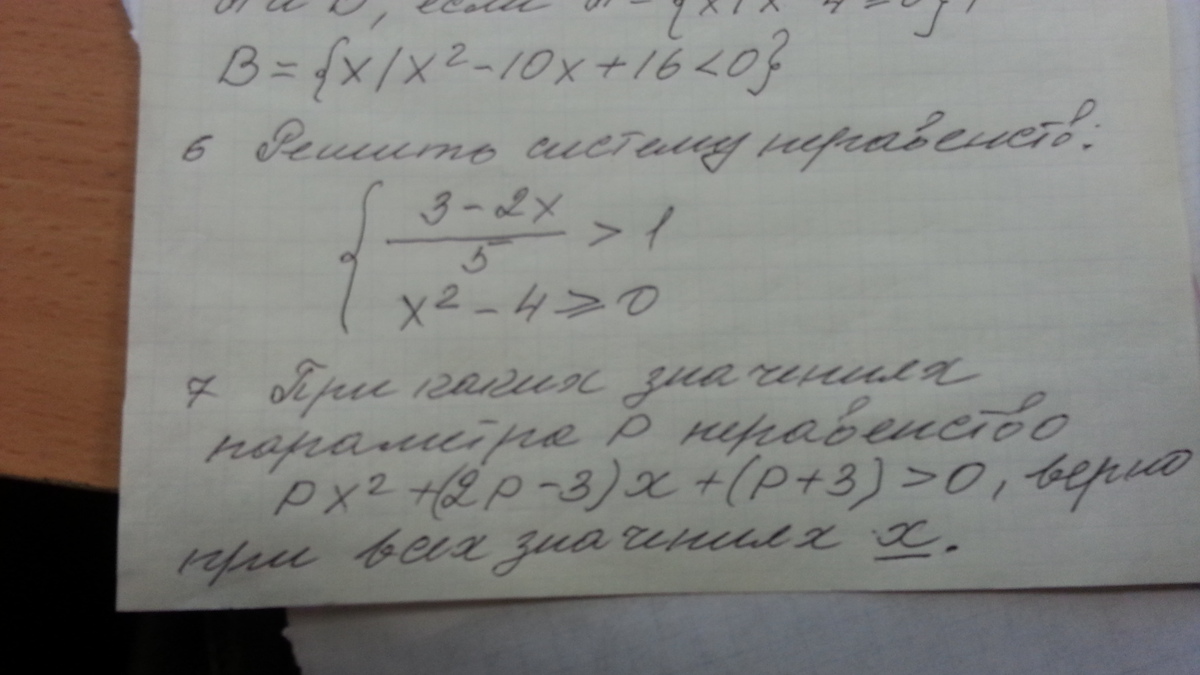 если
B = {x/x² - 10x + 16 < 0}
6 Решить систему неравенств:
{ 3 - 2x / 5 > 1
x² - 4 ≥ 0
7 При каких значениях
параметра p неравенство
px² + (2p - 3)x + (p + 3) > 0, верно
при всех значениях x.